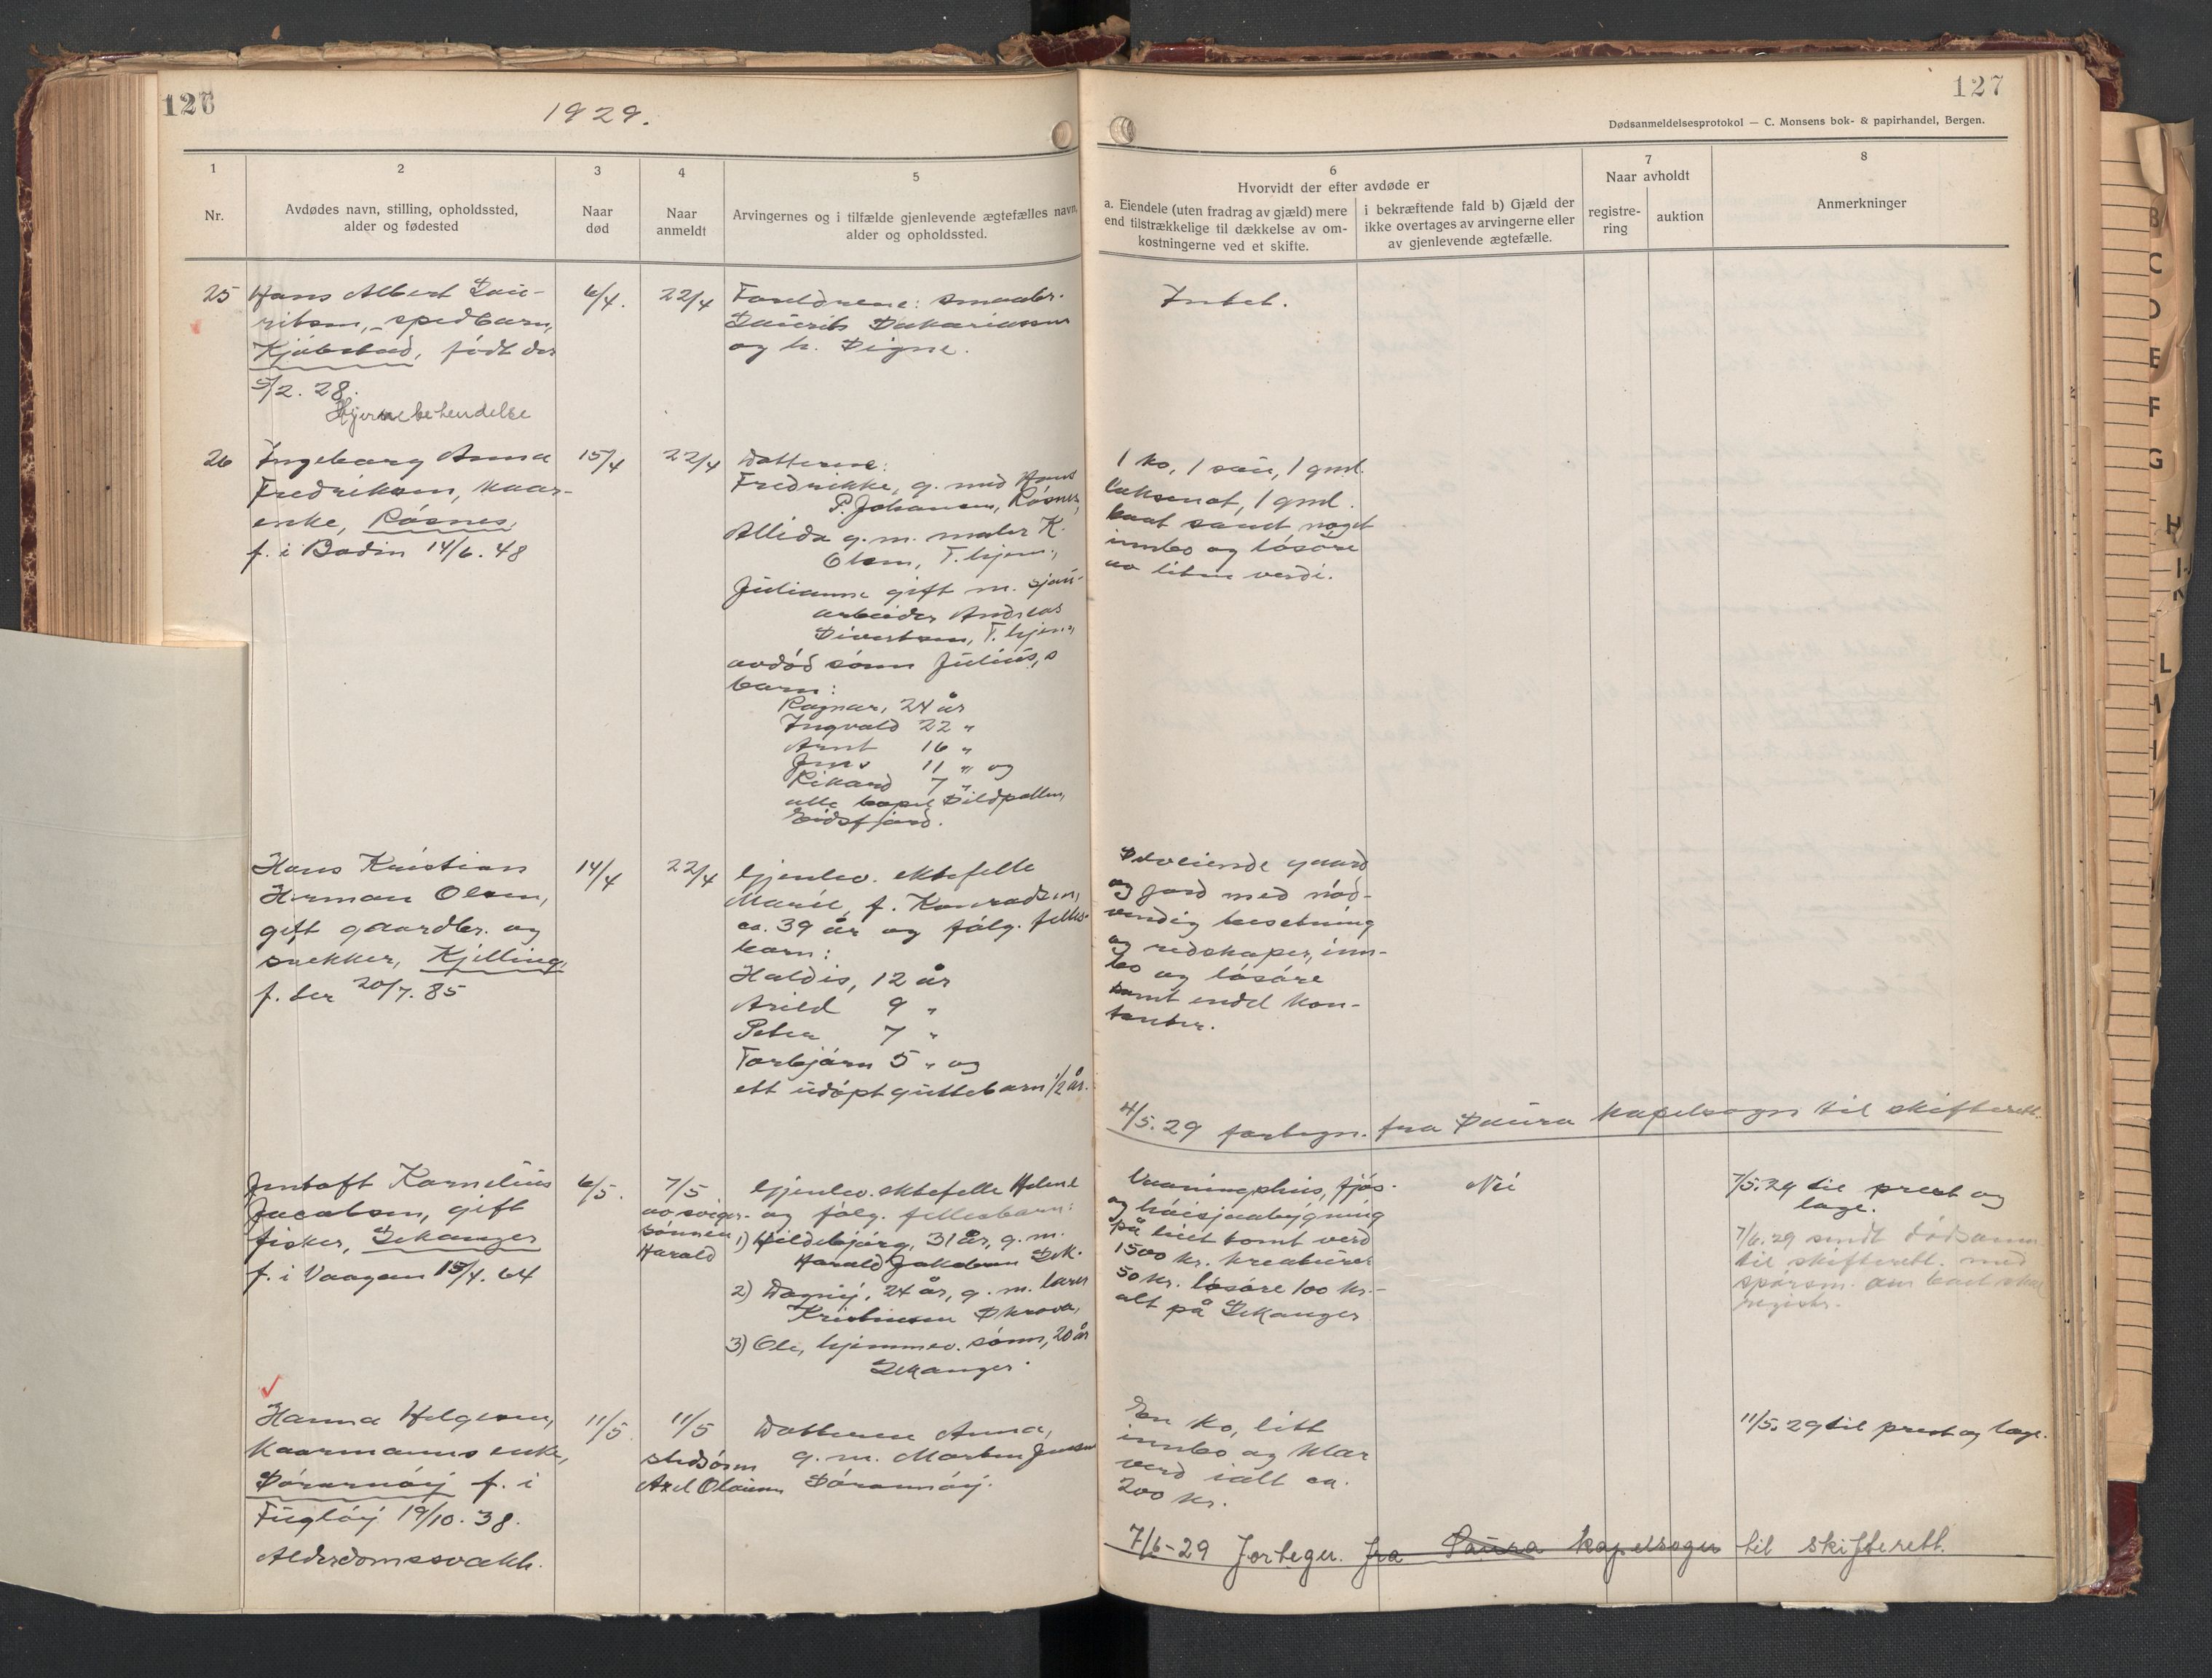 126
1929.
127
Dødsanmeldelsesprotokol — C. Monsens bok- & papirhandel, Bergen.
1
Nr.
2
Avdødes navn, stilling, opholdssted,
alder og fødested
3
Naar
død
4
Naar
anmeldt
5
Arvingernes og i tilfælde gjenlevende ægtefælles navn,
alder og opholdssted.
6
Hvorvidt der efter avdøde er
a. Eiendele (uten fradrag av gjæld) mere
end tilstrækkelige til dækkelse av om-
kostningerne ved et skifte.
i bekræftende fald b) Gjæld der
ikke overtages av arvingerne eller
av gjenlevende ægtefælle.
7
Naar avholdt
registre-
ring
auktion
8
Anmerkninger
25
Hans Albert Lau-
ritsen, spedbarn,
Kjøbstad, født der
5/2. 28.
Hjernebetendelse
6/4.
22/4
Foreldrene: smaabr.
Laurits Sakariassen
og h. Signe.
Intet.
26
Ingeborg Anna
Fredriksen, kaar-
enke, Røsnes,
f. i Bodin 14/6. 48
15/4
22/4
Døttrene:
Fredrikke, g. med Hans
P. Johansen, Røsnes,
Allida g. m. maler K.
Olsen, T. hjem,
Julianne gift m. sjau-
arbeider Andreas
Sivertsen, T. hjem,
avdød sønn Julius, s
barn:
Ragnar, 24 år
Ingvald 22 "
Arnt 16 "
Jens 11 " og
Rikard 7 "
alle bopel Sildpollen,
Eidsfjord.
1 ko, 1 sau, 1 gml.
laksenot, 1 gml.
baat samt noget
innbo og løsøre
av liten verdi.
Hans Kristian
Herman Olsen,
gift gaardbr. og
snekker, Kjelling,
f. der 20/7. 85
14/4
22/4
Gjenlev. ektefelle
Marie, f. Konradsen,
ca. 39 år og følg. felles-
barn:
Haldis, 12 år
Arild 9 "
Peter 7 "
Torbjørn 5 " og
ett udøpt guttebarn 1/2 år.
Selveiende gaard
og jord med nød-
vendig besetning
og redskaper, inn-
bo og løsøre
samt endel kon-
tanter.
4/5. 29 fortegn. fra Saura kapelsogn til skifterett.
Jentoft Kornelius
Jacobsen, gift
fisker, Lekanger
f. i Vaagan 15/4. 64
6/5.
7/5
av sviger-
sønnen
Harald
Gjenlev. ektefelle Helene
og følg. fellesbarn:
1) Hildebjørg, 31 år, g. m.
Harald Jakobsen Lek.
2) Dagny, 24 år, g. m. lærer
Kristiansen Skrova,
3) Ole, hjemmev. sønn, 20 år
Lekanger.
Vaaningshus, fjøs-
og høisjaabygning
på leiet tomt verd
1500 kr. kreaturer
50 kr. løsøre 100 kr. -
alt på Lekanger
Nei
7/5. 29 til prest og
læge.
7/6. 29 sendt dødsanm.
til skifterett. med
spørsm. om boet skal
registr.
Hanna Helgesen,
kaarmanns enke,
Sørarnøy f. i
Fugløy 19/10. 38.
Alderdomssvakh.
11/5.
11/5
stedsønn
Axel Olaisen
Datteren Anna,
g. m. Morten Jensen
Sørarnøy.
En ko, litt
innbo og klær
verd ialt ca.
200 kr.
11/5. 29 til prest og læge.
7/6-29 Fortegn. fra Saura kapelsogn til skifterett.
B
C
D
E
F
G
H
L